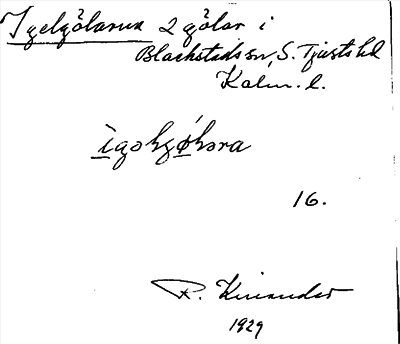 Igelgölarna 2 gölar i
Blackstads sn, S. Tjusts hd
Kalm. l.
16.
R. Kinander
1929